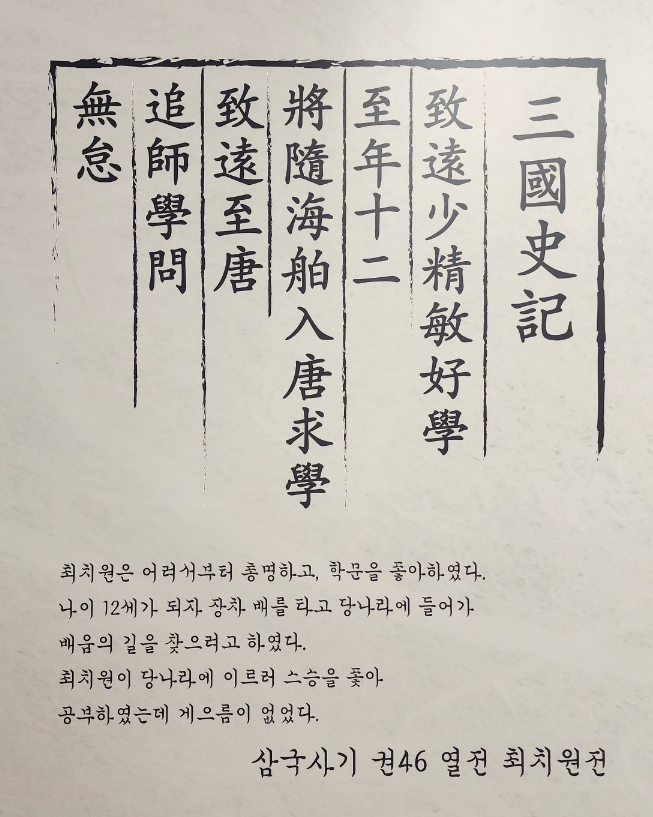 三國史記
致遠少精敏好學
至年十二
將隨海舶入唐求學
致遠至唐
追師學問
無怠
최치원은 어려서부터 총명하고, 학문을 좋아하였다.
나이 12세가 되자 장차 배를 타고 당나라에 들어가
배움의 길을 찾으려고 하였다.
최치원이 당나라에 이르러 스승을 좇아
공부하였는데 게으름이 없었다.
삼국사기 권46 열전 최치원전